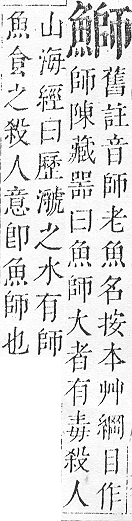 鰤
舊註音師老魚名按本艸綱目作
師陳藏器曰魚師大者有毒殺人
山海經曰歷㶁之水有師
魚食之殺人意卽魚師也